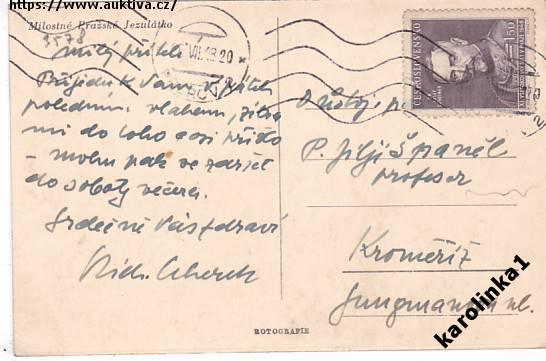 https://www.auktiva.cz/
Milostné Pražské Jezulátko
3578
Milý příteli
VII.48.20
Přijedu k Vám v pátek
poledním vlakem,
mi do toho
– mohu pak se zdržet
do soboty večera.
Srdečně Vás zdraví
ČESKOSLOVENSKO
1.50
P. Jiljí Španěl
profesor
Kroměříž
Jungmannova ul.
ROTOGRAFIE
karolinka1